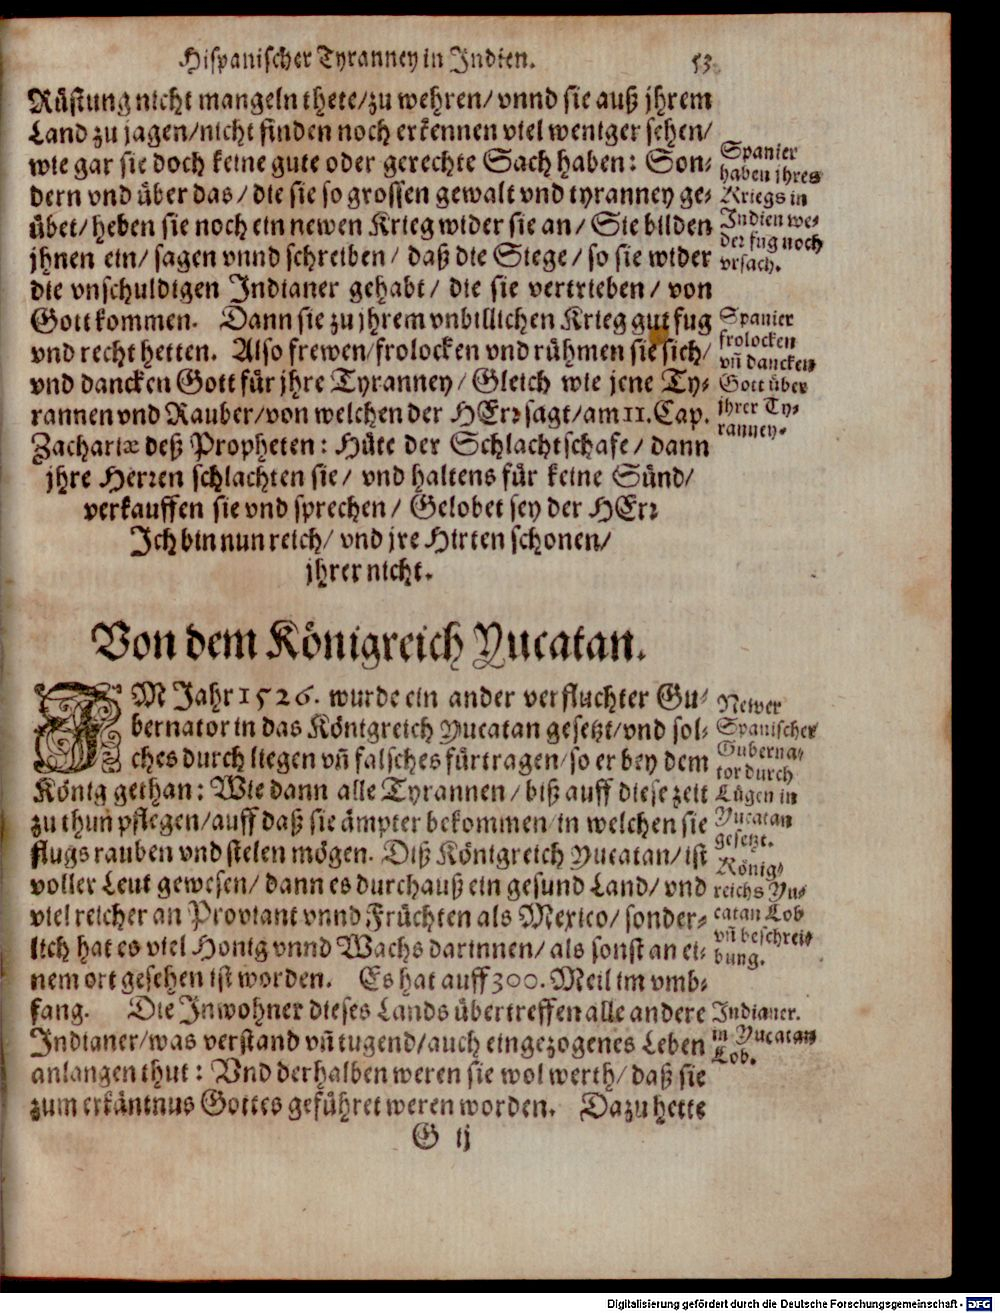 Hispanischer Tyranney in Indien. 53
Rüstung nicht mangeln thete/zu wehren/ vnnd sie auß jhrem
Land zu jagen/nicht finden noch erkennen viel weniger sehen/
wie gar sie doch keine gute oder gerechte Sach haben: Son-
dern vnd über das/ die sie so grossen gewalt vnd tyranney ge-
übet/ heben sie noch ein newen Krieg wider sie an/ Sie bilden
jhnen ein/ sagen vnnd schreiben/ daß die Siege/ so sie wider
die vnschuldigen Indianer gehabt/ die sie vertrieben/ von
Gott kommen. Dann sie zu jhrem vnbillichen Krieg gut fug
vnd recht hetten. Also frewen/frolocken vnd rühmen sie sich/
vnd dancken Gott für jhre Tyranney/ Gleich wie jene Ty-
rannen vnd Rauber/von welchen der HErr sagt/am 11. Cap.
Zachariæ deß Propheten: Hüte der Schlachtschafe/ dann
jhre Herren schlachten sie/ vnd haltens für keine Sünd/
verkauffen sie vnd sprechen/ Gelobet sey der HErr
Ich bin nun reich/ vnd jre Hirten schonen/
jhrer nicht.
Spanier
haben jhres
Kriegs in
Indien we-
der fug noch
vrsach.
Spanier
frolocken
vñ dancken
Gott über
jhrer Ty-
ranney.
Von dem Königreich Yucatan.
IM Jahr 1526. wurde ein ander verfluchter Gu-
bernator in das Königreich Yucatan gesetzt/vnd sol-
ches durch liegen vñ falsches fürtragen/so er bey dem
König gethan: Wie dann alle Tyrannen/ biß auff diese zeit
zu thun pflegen/auff daß sie ämpter bekommen/in welchen sie
flugs rauben vnd stelen mögen. Diß Königreich Yucatan/ist
voller Leut gewesen/ dann es durchauß ein gesund Land/ vnd
viel reicher an Proviant vnnd Früchten als Mexico/ sonder-
lich hat es viel Honig vnnd Wachs darinnen/ als sonst an ei-
nem ort gesehen ist worden. Es hat auff 300. Meil im vmb-
fang. Die Inwohner dieses Lands übertreffen alle andere
Indianer/was verstand vñ tugend/auch eingezogenes Leben
anlangen thut: Vnd derhalben weren sie wol werth/ daß sie
zum erkäntnus Gottes geführet weren worden. Dazu hette
Newer
Spanischer
Guberna-
tor durch
Lügen in
Yucatan
gesetzt.
König-
reichs Yu-
catan Lob
vñ beschrei-
bung.
Indianer.
in Yucatan
Lob.
G ij
Digitalisierung gefördert durch die Deutsche Forschungsgemeinschaft - DFG